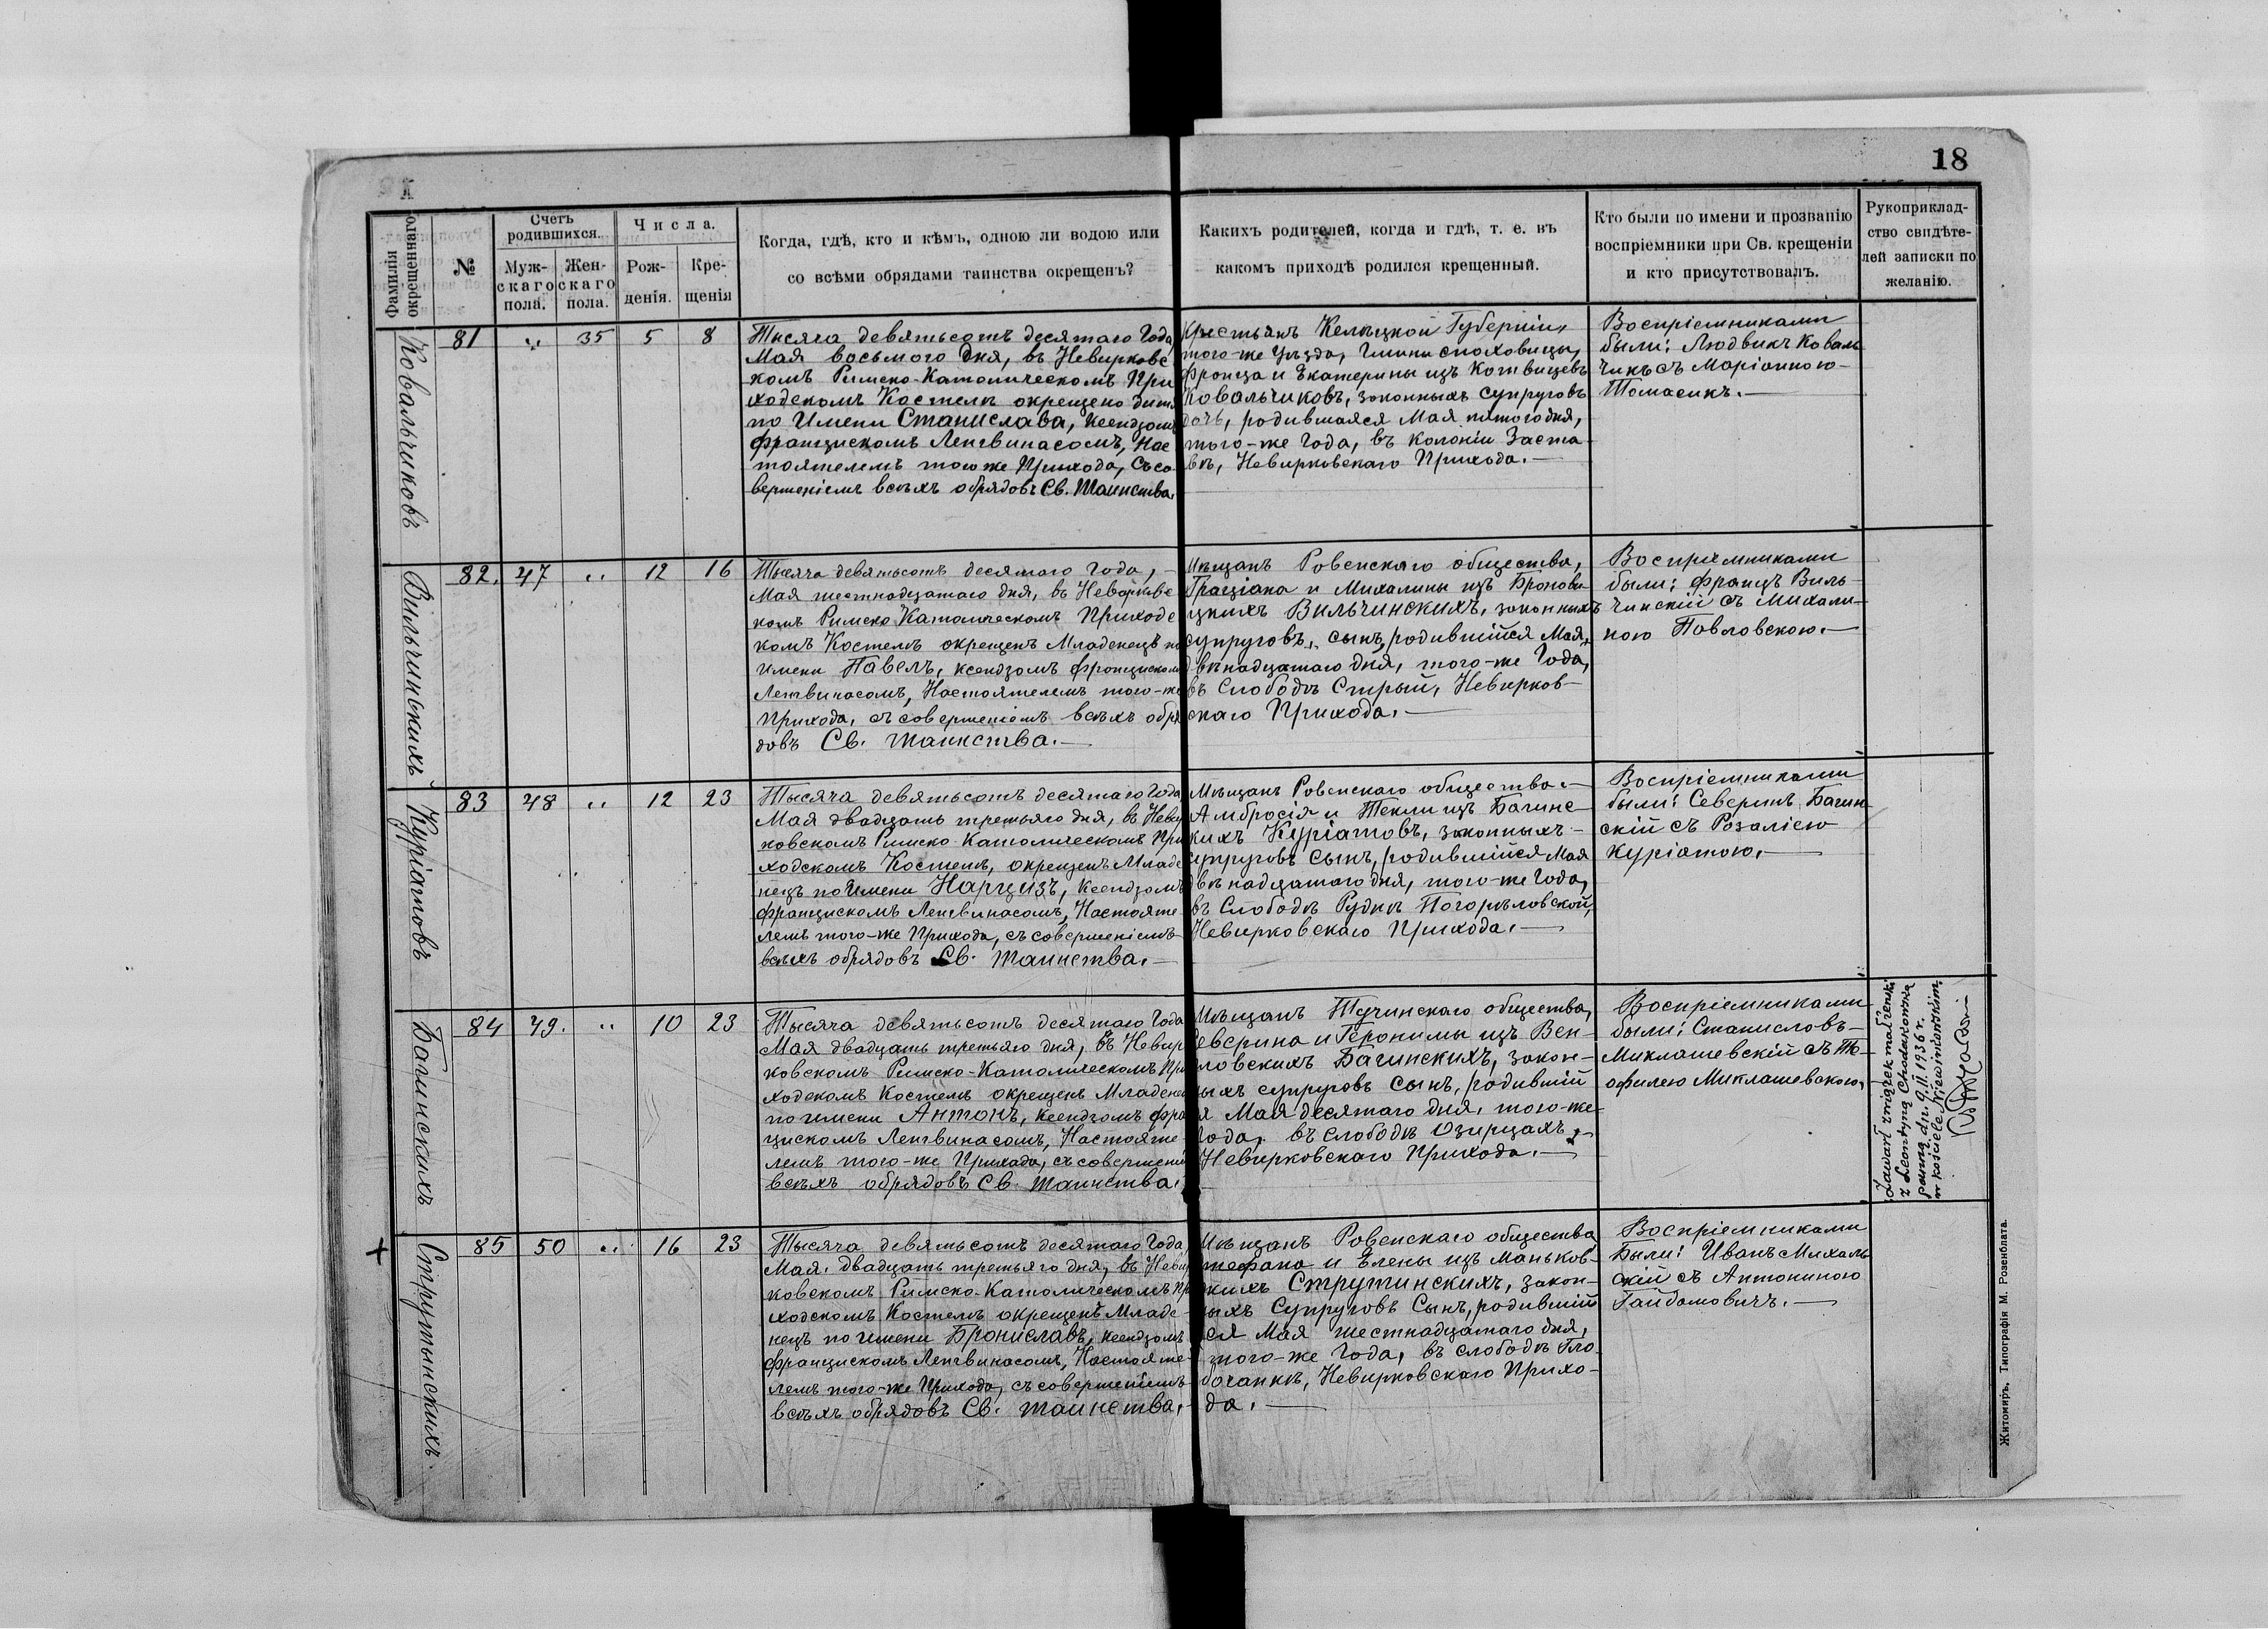 18
Фамилія окрещеннаго
№
Счетъ родившихся.
Мужскаго пола.
Женскаго пола.
Числа.
Рожденія.
Крещенія
Когда, гдѣ, кто и кѣмъ, одною ли водою или
со всѣми обрядами таинства окрещенъ?
Какихъ родителей, когда и гдѣ, т. е. въ
какомъ приходѣ родился крещенный.
Кто были по имени и прозванію
воспріемники при Св. крещеніи
и кто присутствовалъ.
Рукоприклад-
ство свидѣте-
лей записки по
желанію.
Ковальчиковъ
81 " 35 5 8
Тысяча девятьсотъ десятаго Года
Мая восьмого дня, въ Невирковс
комъ Римско-Католическомъ При
ходскомъ Костелѣ окрещено дитя
по Имени Станислава, Ксендзомъ
Францискомъ Ленгвинасомъ, Нас
тоятелемъ того же Прихода, съ со
вершеніемъ всѣхъ обрядовъ Св. Таинства.
Крестьянъ Келецкой Губерніи,
того-же уѣзда, Гмины Сноховицы,
Франца и Екатерины изъ Котвицевъ
Ковальчиковъ, законныхъ супруговъ
дочь, родившаяся Мая пятого дня,
того-же Года, въ колоніи Заста
вѣ, Невирковскаго Прихода.—
Воспріемниками
были: Людвикъ Коваль
чикъ съ Маріанною
Томасикъ.—
Вильчинскихъ
82. 47 " 12 16
Тысяча девятьсотъ десятаго Года,
Мая шестнадцатаго дня, въ Невирковс
комъ Римско Католическомъ Приходс
комъ Костелѣ окрещенъ Младенецъ по
имени Павелъ, ксендзомъ Францискомъ
Ленгвинасомъ, Настоятелемъ того-же
Прихода, съ совершеніемъ всѣхъ обря
довъ Св. Таинства.—
Мѣщанъ Ровенскаго общества,
Граціана и Михалины изъ Бронови
цкихъ Вильчинскихъ, законныхъ
супруговъ, сынъ, родившійся Мая,
двѣнадцатаго дня, того-же Года,
въ Слободѣ Стрый, Невирков-
скаго Прихода.—
Воспріемниками
были: Францъ Виль-
чинскій съ Михали-
ною Павловскою.—
Куріатовъ
83 48 " 12 23
Тысяча девятьсотъ десятаго Года
Мая двадцать третьяго дня, въ Невир
ковскомъ Римско-Католическомъ При
ходскомъ Костелѣ, окрещенъ Младе
нецъ по Имени Нарцизъ, ксендзомъ
Францискомъ Ленгвинасомъ, Настояте
лемъ того-же Прихода, съ совершеніемъ
всѣхъ обрядовъ Св. Таинства.—
Мѣщанъ Ровенскаго общества
Амбросія и Текли изъ Багинс
кихъ Куріатовъ, законныхъ
супруговъ сынъ, родившійся Мая
двѣнадцатаго дня, того-же Года,
въ Слободѣ Рудкѣ Погорѣловской,
Невирковскаго Прихода.—
Воспріемниками
были: Северинъ Багин
скій съ Розаліею
Куріатою.—
Багинскихъ
84 49. " 10 23
Тысяча девятьсотъ десятаго Года
Мая двадцать третьяго дня, въ Невир
ковскомъ Римско-Католическомъ При
ходскомъ Костелѣ окрещенъ Младене
по имени Антонъ, ксендзомъ Фра
цискомъ Ленгвинасомъ, Настояте
лемъ того-же Прихода, съ совершені
всѣхъ обрядовъ Св. Таинства.
Мѣщанъ Тучинскаго общества,
еверина и Геронимы изъ Вен-
ловскихъ Багинскихъ, закон-
ыхъ супруговъ сынъ, родившій
я Мая десятаго дня, того-же
Года, въ слободѣ Озирцахъ,
Невирковскаго Прихода.—
Воспріемниками
были: Станиславъ
Миклашевскій съ Те-
офилею Миклашевскою.
Zawarł związek małżeński
z Leontyną Chodakowską
panną dn. 9.II.1936 r.
w kościele Niewirkowskim
+ Струтынскихъ.
85 50 " 16 23
Тысяча девятьсотъ десятаго Года
Мая двадцать третьяго дня, въ Невир
ковскомъ Римско-Католическомъ Пр
ходскомъ Костелѣ окрещенъ Младе-
нецъ по имени Брониславъ, ксендзомъ
Францискомъ Ленгвинасомъ, Настояте-
лемъ того-же Прихода, съ совершеніемъ
всѣхъ обрядовъ Св. Таинства.
Мѣщанъ Ровенскаго общества
тефана и Елены изъ Маньков
кихъ Струтинскихъ, закон-
ыхъ Супруговъ Сынъ, родившій
ся Мая шестнадцатаго дня,
того-же Года, въ слободѣ Гло-
бочанкѣ, Невирковскаго Прихо-
да.—
Воспріемниками
Были: Иванъ Михаль
скій съ Антониною
Гайдамовичъ.—
Житомиръ, Типографія М. Розенблата.